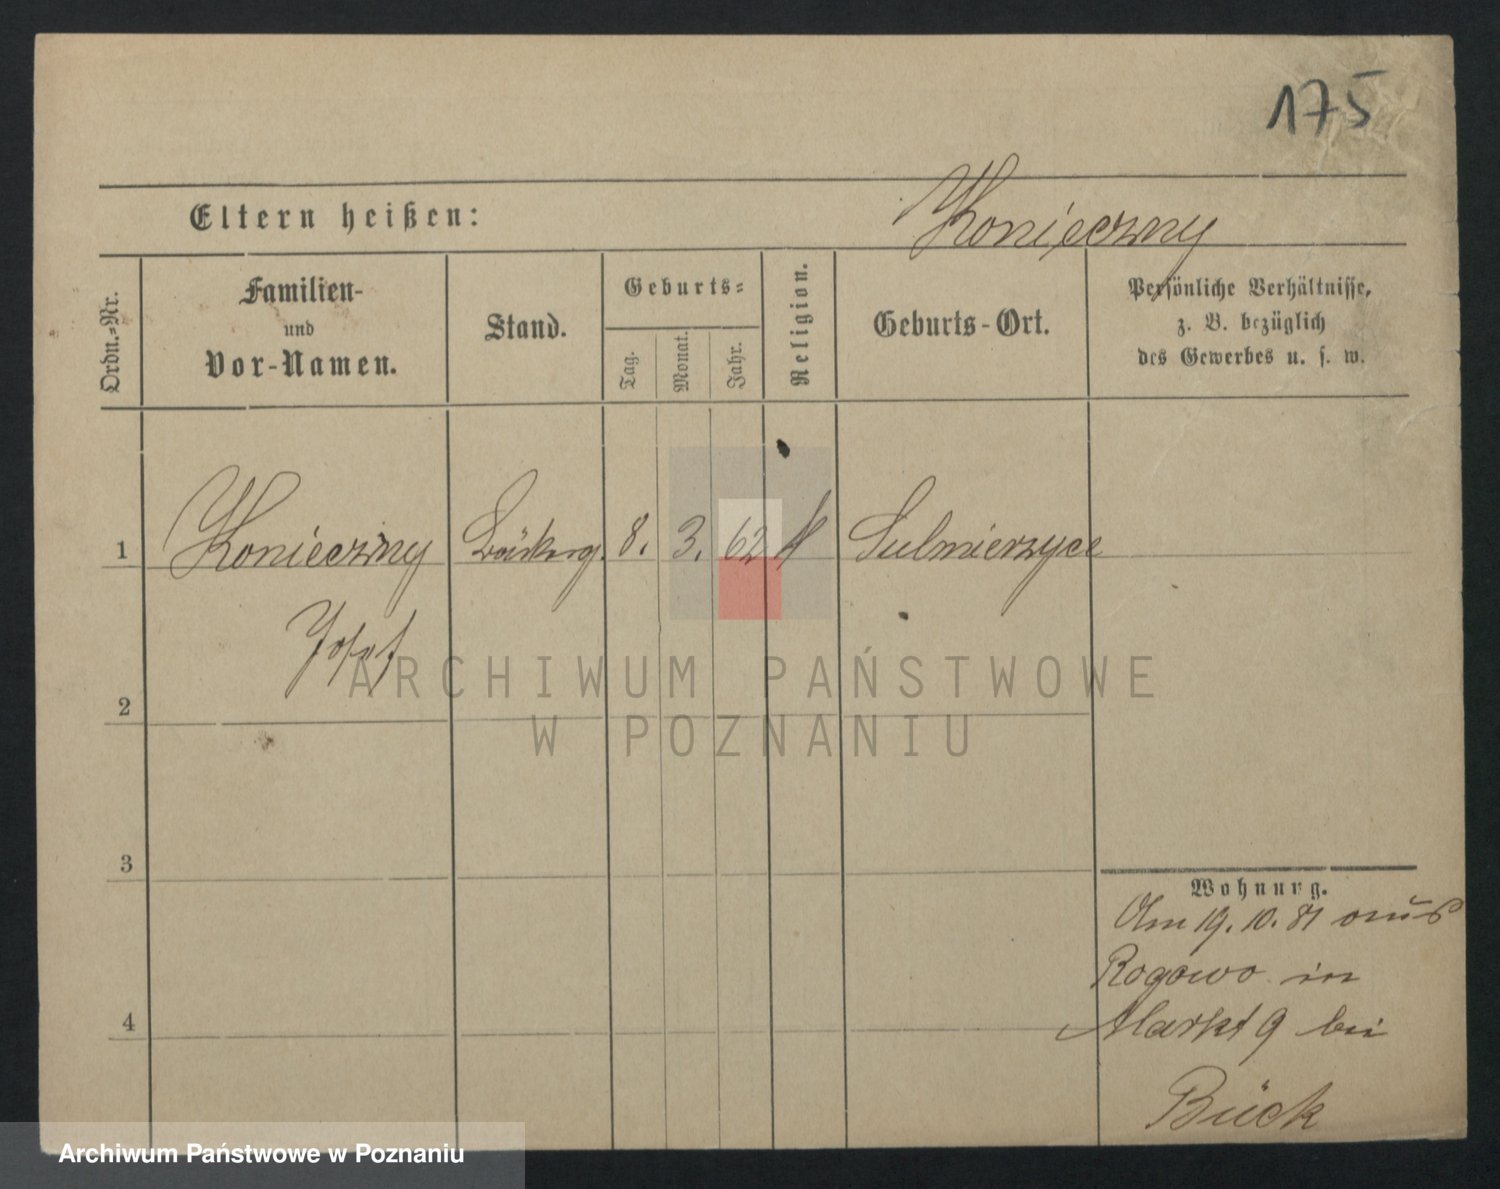 175
Konieczny
Eltern heißen:
Ordn.-Nr.
Familien-
und
Vor-Namen.
Stand.
Geburts-
Tag.
Monat.
Jahr.
Religion.
Geburts-Ort.
Persönliche Verhältnisse,
z. B. bezüglich
des Gewerbes u. s. w.
1 Konieczny Bäckerg. 8. 3. 62 k Sulmierzyce
Josef
2
ARCHIWUM PAŃSTWOWE
W POZNANIU
3
Wohnung.
Am 19. 10. 81 aus
Rogowo in
4
Markt 9 bei
Bück
Archiwum Państwowe w Poznaniu